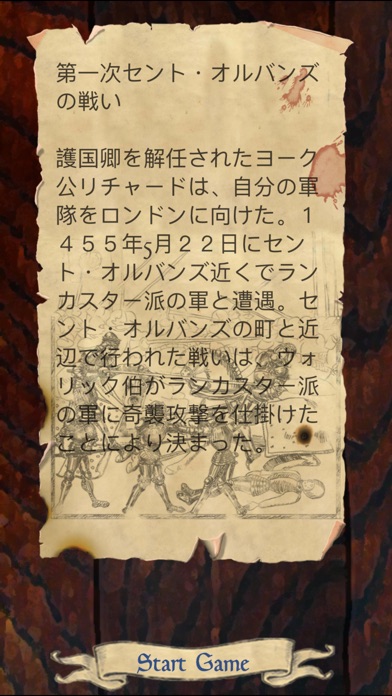 第一次セント・オルバンズ
の戦い
護国卿を解任されたヨーク
公リチャードは、自分の軍
隊をロンドンに向けた。１
４５５年5月２２日にセン
ト・オルバンズ近くでラン
カスター派の軍と遭遇。セ
ント・オルバンズの町と近
辺で行われた戦いは、ウォ
リック伯がランカスター派
の軍に奇襲攻撃を仕掛けた
ことにより決まった。
Start Game